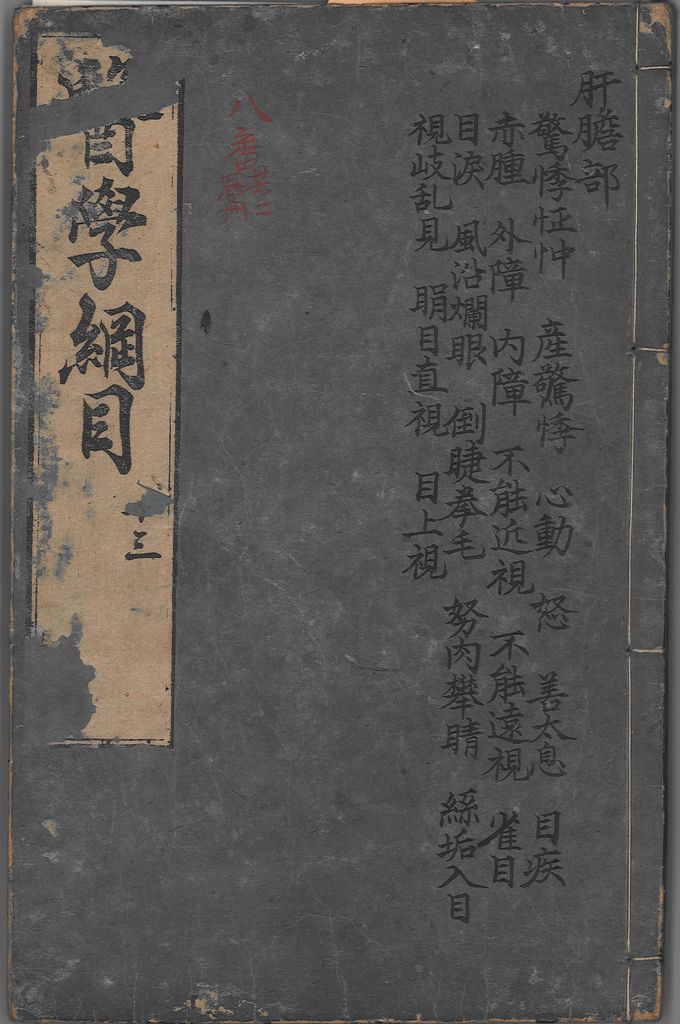 肝膽部
驚悸怔忡　産驚悸　心動　怒　善太息　目疾
赤腫　外障　内障　不能近視　不能遠視　雀目
目淚　風沿爛眼　倒睫拳毛　努肉攀睛　絲垢入目
視歧乱見　睊目直視　目上視
八番
共二
醫學綱目
十三